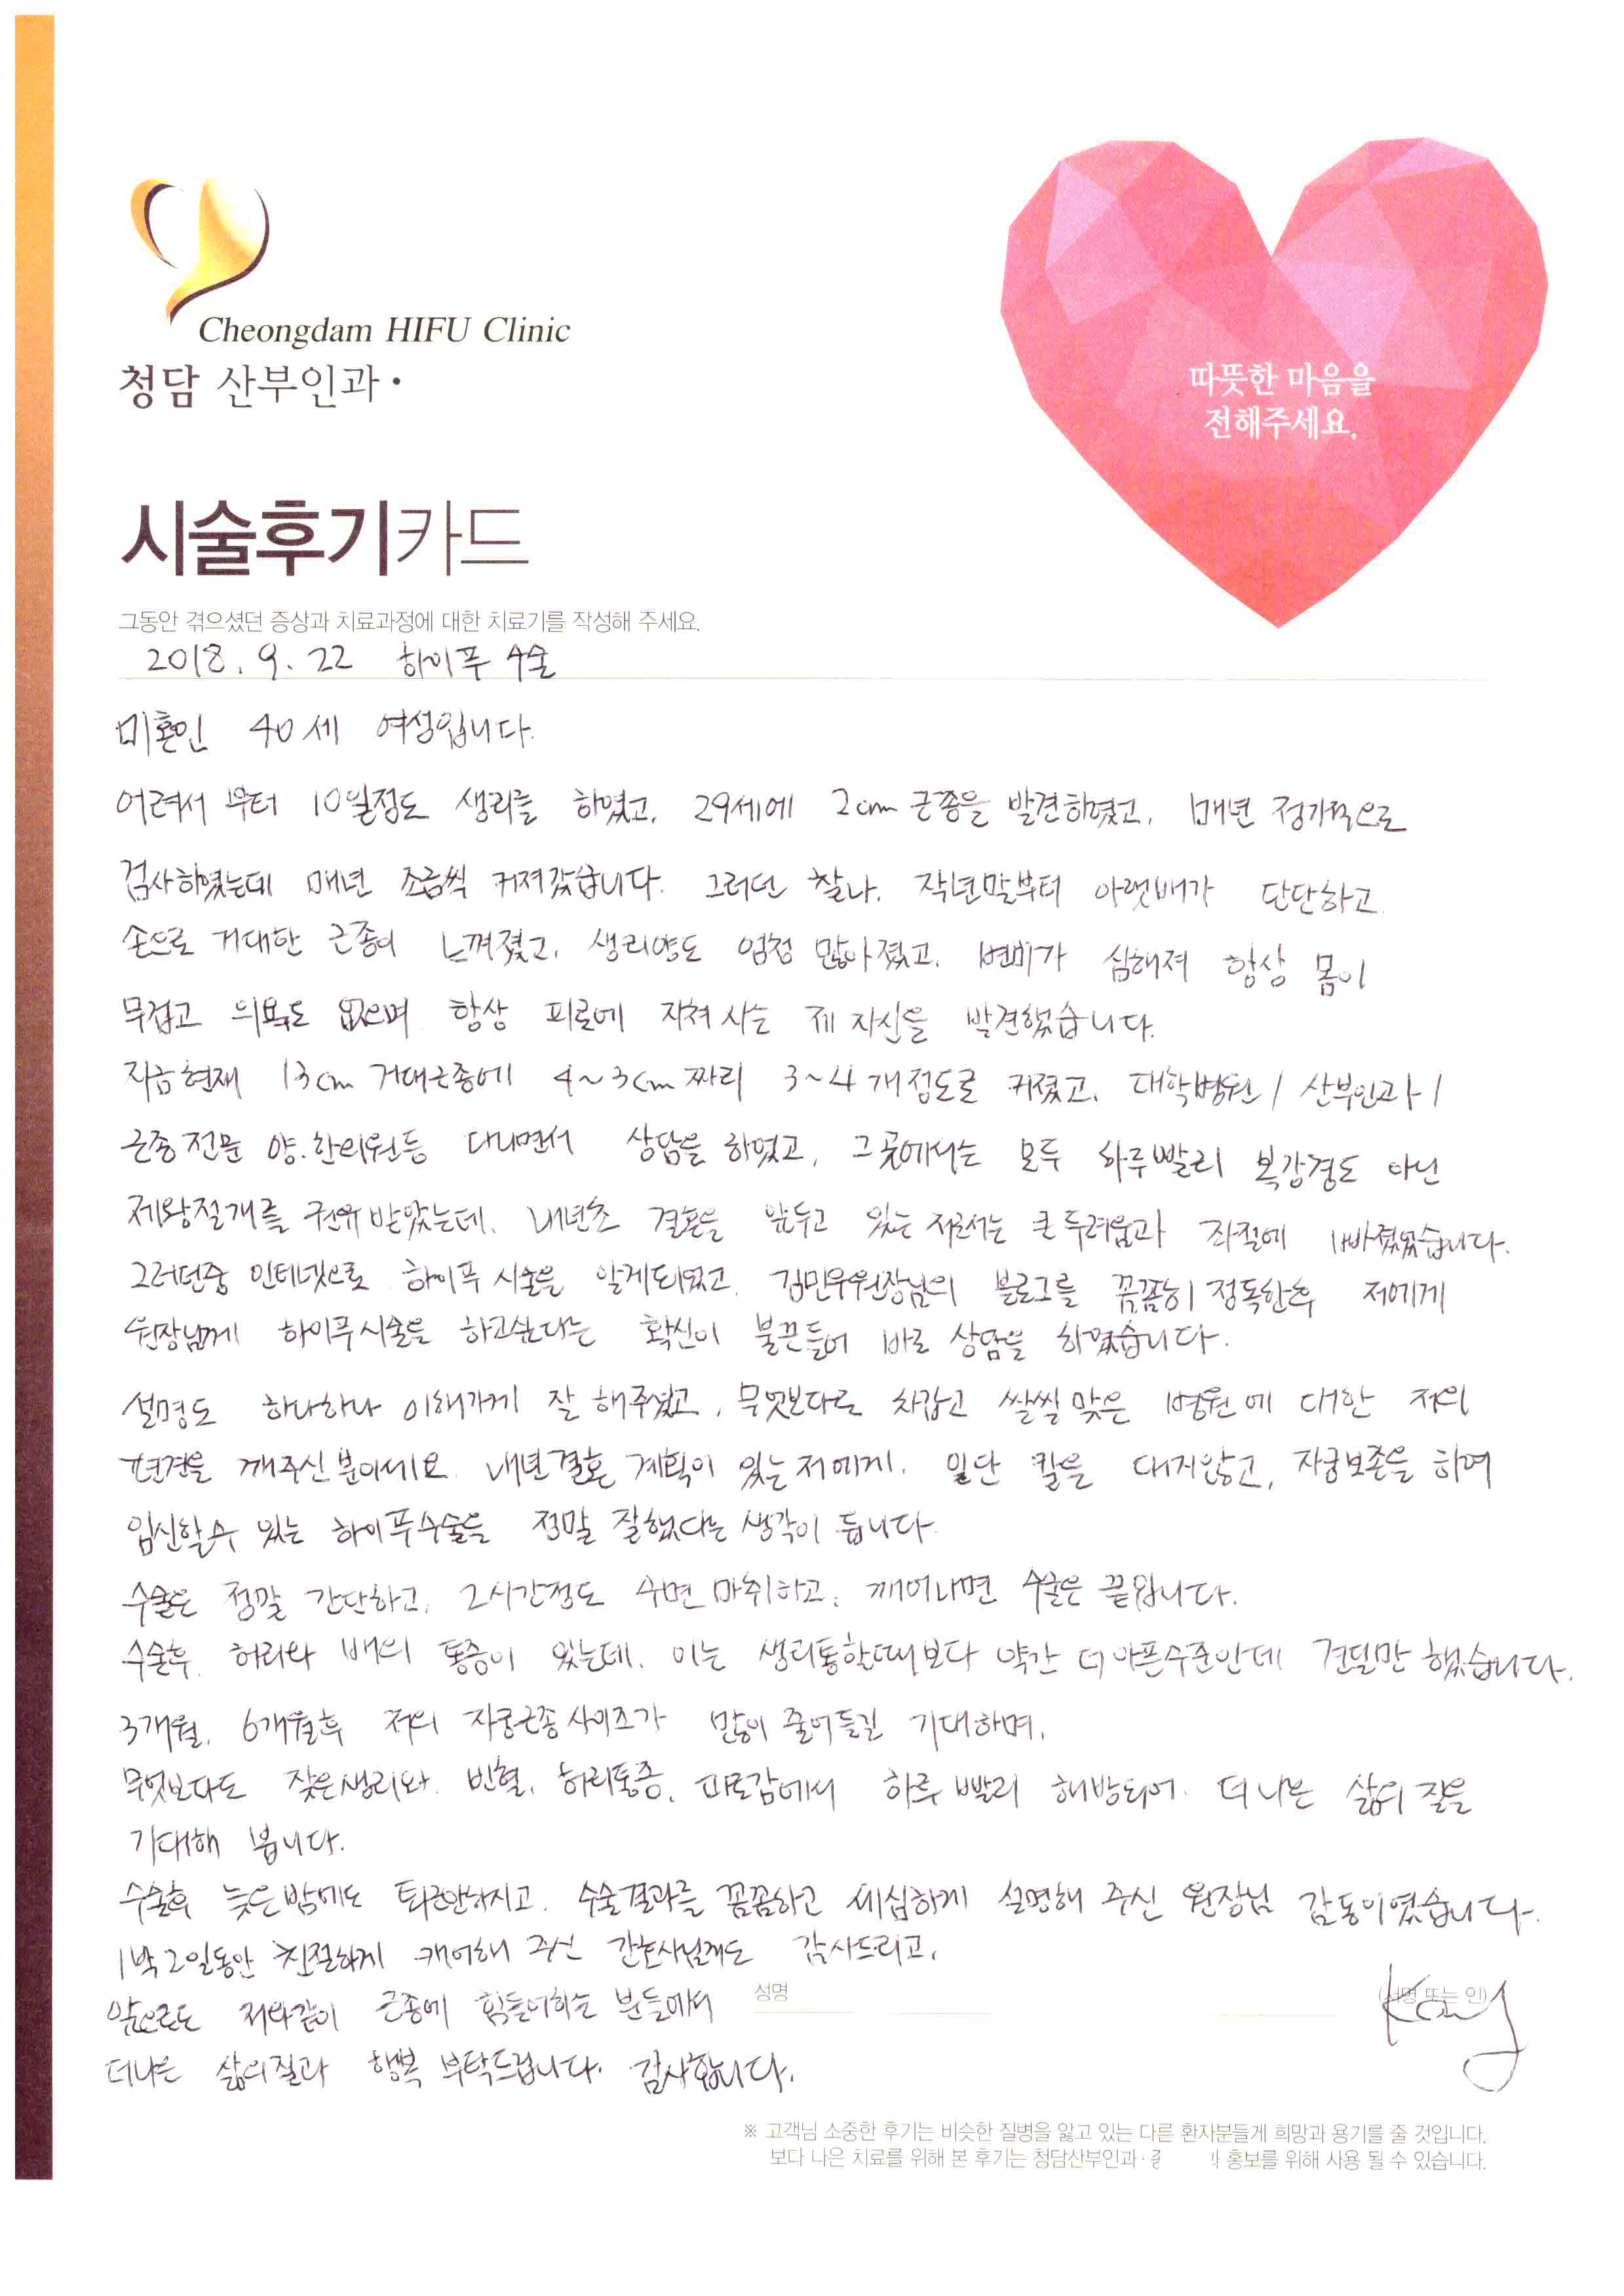 Cheongdam HIFU Clinic
청담 산부인과·
따뜻한 마음을
전해주세요.
시술후기카드
그동안 겪으셨던 증상과 치료과정에 대한 치료기를 작성해 주세요.
2018. 9. 22 하이푸 수술
미혼인 40세 여성입니다.
어려서 부터 10일정도 생리를 하였고, 29세에 2cm 근종을 발견하였고, 매년 정기적으로
검사하였는데 매년 조금씩 커져갔습니다. 그러던 찰나, 작년말부터 아랫배가 단단하고
손으로 거대한 근종이 느껴졌고, 생리양도 엄청 많아졌고, 변비가 심해져 항상 몸이
무겁고 의욕도 없으며 항상 피로에 지쳐 사는 제 자신을 발견했습니다.
지금 현재 13cm 거대근종에 4~3cm 짜리 3~4개정도로 커졌고, 대학병원/ 산부인과/
근종 전문 양.한의원등 다니면서 상담을 하였고, 그곳에서는 모두 하루빨리 복강경도 아닌
제왕절개를 권유 받았는데, 내년초 결혼을 앞두고 있는 저로서는 큰 두려움과 좌절에 빠졌었습니다.
그러던중 인터넷으로 하이푸 시술을 알게되었고 김민우원장님의 블로그를 꼼꼼히 정독한후 저에게
원장님께 하이푸시술을 하고싶다는 확신이 불끈들어 바로 상담을 하였습니다.
설명도 하나하나 이해가게 잘 해주셨고, 무엇보다도 차갑고 쌀쌀 맞은 병원에 대한 저의
편견을 깨주신 분이세요. 내년 결혼 계획이 있는 저에게, 일단 칼을 대지않고, 자궁보존을 하여
임신할수 있는 하이푸수술을 정말 잘했다는 생각이 듭니다.
수술은 정말 간단하고, 2시간정도 수면 마취하고, 깨어나면 수술은 끝입니다.
수술후 허리와 배의 통증이 있는데, 이는 생리통할때보다 약간 더 아픈수준인데 견딜만 했습니다.
3개월, 6개월후 저의 자궁근종 사이즈가 많이 줄어들길 기대하며,
무엇보다도 잦은생리와, 빈혈, 허리통증, 피로감에서 하루 빨리 해방되어 더 나은 삶의 질을
기대해 봅니다.
수술후 늦은 밤에도 퇴근안하시고, 수술결과를 꼼꼼하고 세심하게 설명해 주신 원장님 감동이였습니다.
1박 2일동안 친절하게 캐어해 주신 간호사님께도 감사드리고,
앞으로도 저와같이 근종에 힘들어하는 분들에게 성명 Kay
더나은 삶의질과 행복 부탁드립니다. 감사합니다.
※ 고객님 소중한 후기는 비슷한 질병을 앓고 있는 다른 환자분들게 희망과 용기를 줄 것입니다.
보다 나은 치료를 위해 본 후기는 청담산부인과· 홍보를 위해 사용 될 수 있습니다.